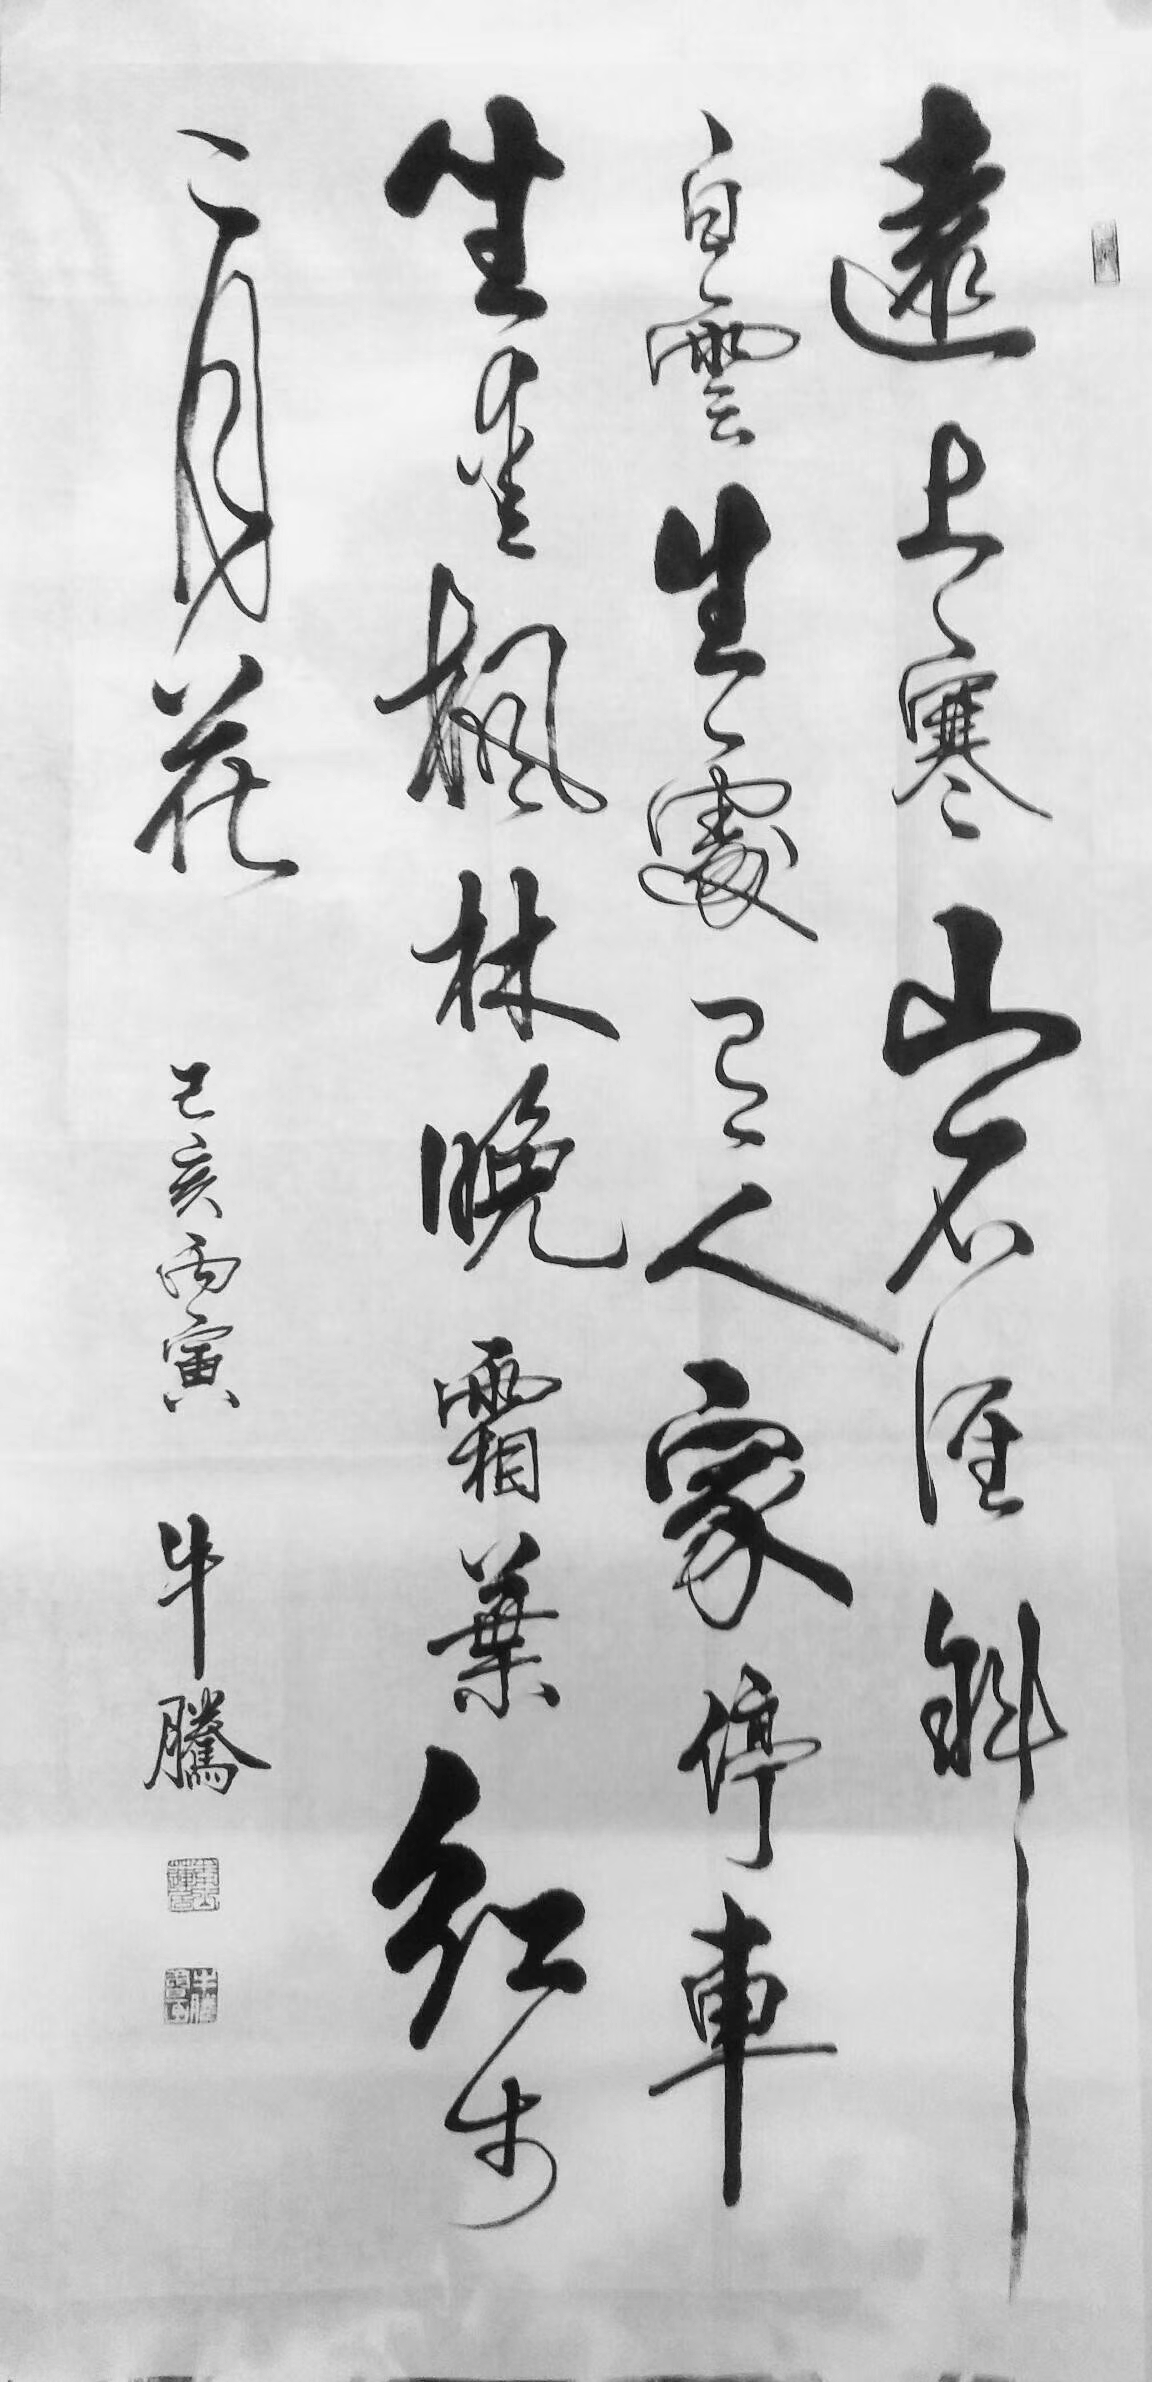 遠上寒山石径斜
白雲生處有人家停車
坐愛楓林晚霜葉紅於
二月花 己亥丙寅 牛騰